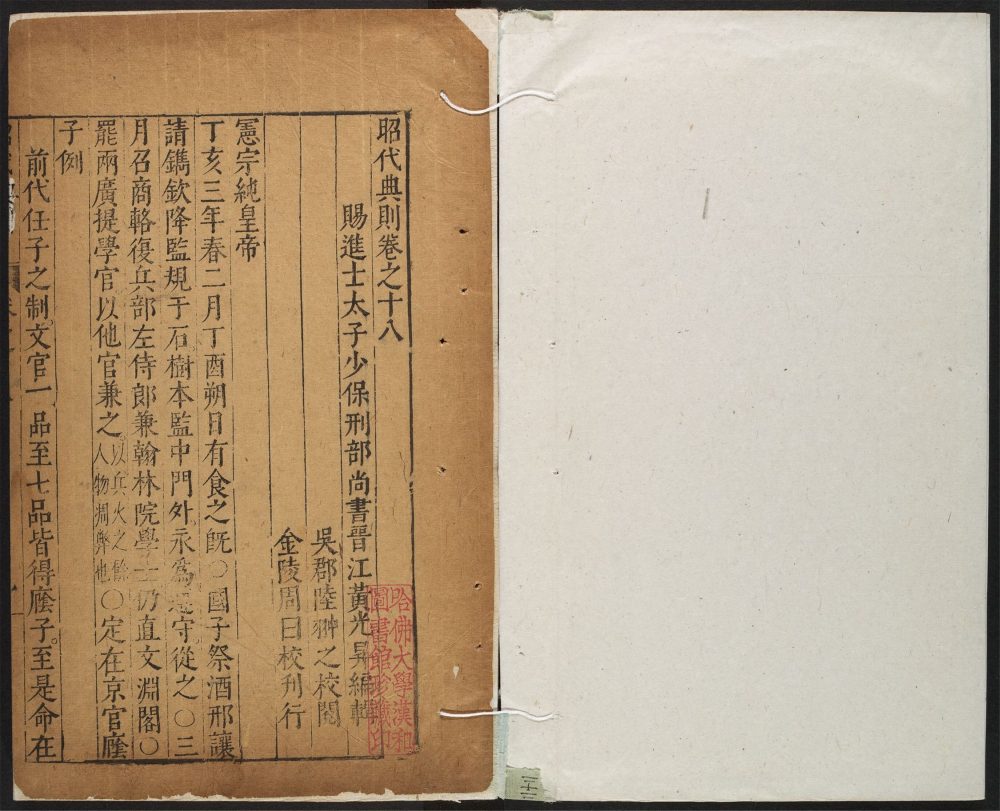 昭代典則卷之十八
賜進士太子少保刑部尚書晉江黃光昇編輯
吳郡陸翀之校閱
金陵周曰校刊行
憲宗純皇帝
丁亥三年春二月丁酉朔日有食之旣○國子祭酒邢讓
請鐫欽降監規于石樹本監中門外永爲遵守從之○三
月召商輅復兵部左侍郎兼翰林院學士仍直文淵閣○
罷兩廣提學官以他官兼之以兵火之餘人物凋弊也○定在京官廕
子例
前代任子之制文官一品至七品皆得廕子至是命在
哈佛大學漢和
圖書館珍藏印